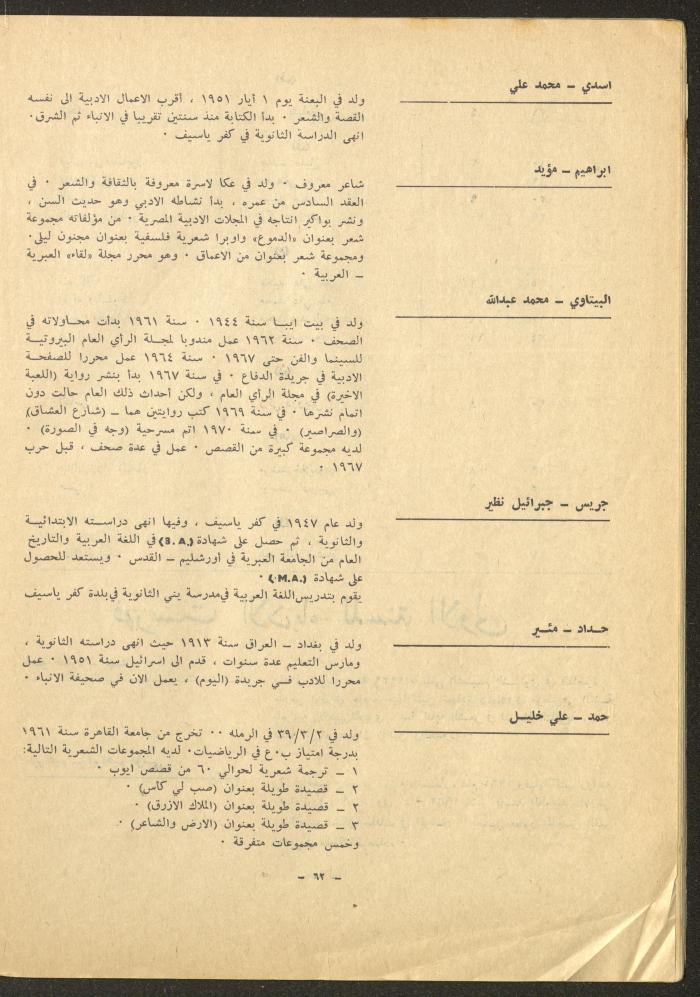 اسدي – محمد علي
ولد في البعنة يوم ١ أيار ١٩٥١ ، أقرب الاعمال الادبية الى نفسه
القصة والشعر ٠ بدأ الكتابة منذ سنتين تقريبا في الانباء ثم الشرق٠
انهى الدراسة الثانوية في كفر ياسيف ٠
ابراهيم – مؤيد
شاعر معروف ٠ ولد في عكا لاسرة معروفة بالثقافة والشعر ٠ في
العقد السادس من عمره ، بدأ نشاطه الادبي وهو حديث السن ،
ونشر بواكير انتاجه في المجلات الادبية المصرية ٠ من مؤلفاته مجموعة
شعر بعنوان «الدموع» واوبرا شعرية فلسفية بعنوان مجنون ليلى٠
ومجموعة شعر بعنوان من الاعماق ٠ وهو محرر مجلة «لقاء» العبرية
– العربية ٠
البيتاوي – محمد عبدالله
ولد في بيت ايبا سنة ١٩٤٤ ٠ سنة ١٩٦١ بدأت محاولاته في
الصحف ٠ سنة ١٩٦٢ عمل مندوبا لمجلة الرأي العام البيروتية
للسينما والفن حتى ١٩٦٧ ٠ سنة ١٩٦٤ عمل محررا للصفحة
الادبية في جريدة الدفاع ٠ في سنة ١٩٦٧ بدأ بنشر رواية (اللعبة
الاخيرة) في مجلة الرأي العام ، ولكن أحداث ذلك العام حالت دون
اتمام نشرها ٠ في سنة ١٩٦٩ كتب روايتين هما – (شارع العشاق)
(والصراصير) ٠ في سنة ١٩٧٠ اتم مسرحية (وجه في الصورة) ٠
لديه مجموعة كبيرة من القصص ٠ عمل في عدة صحف ، قبل حرب
١٩٦٧ ٠
جريس – جبرائيل نظير
ولد عام ١٩٤٧ في كفر ياسيف ، وفيها انهى دراسته الابتدائية
والثانوية ، ثم حصل على شهادة (B.A.) في اللغة العربية والتاريخ
العام من الجامعة العبرية في أورشليم – القدس ٠ ويستعد للحصول
على شهادة (M.A.) ٠
يقوم بتدريس اللغة العربية في مدرسة يني الثانوية في بلدة كفر ياسيف
حداد – مئير
ولد في بغداد – العراق سنة ١٩١٣ حيث انهى دراسته الثانوية ،
ومارس التعليم عدة سنوات ، قدم الى اسرائيل سنة ١٩٥١ ٠ عمل
محررا للادب في جريدة (اليوم) ، يعمل الان في صحيفة الانباء ٠
حمد – علي خليل
ولد في ٣٩/٣/٢ في الرمله ٠٠ تخرج من جامعة القاهرة سنة ١٩٦١
بدرجة امتياز ب٠ع في الرياضيات٠ لديه المجموعات الشعرية التالية:
١ – ترجمة شعرية لحوالي ٦٠ من قصص ايوب ٠
٢ – قصيدة طويلة بعنوان (صب لي كاس) ٠
٢ – قصيدة طويلة بعنوان (الملاك الازرق) ٠
٣ – قصيدة طويلة بعنوان (الارض والشاعر) ٠
وخمس مجموعات متفرقة ٠
– ٦٢ –